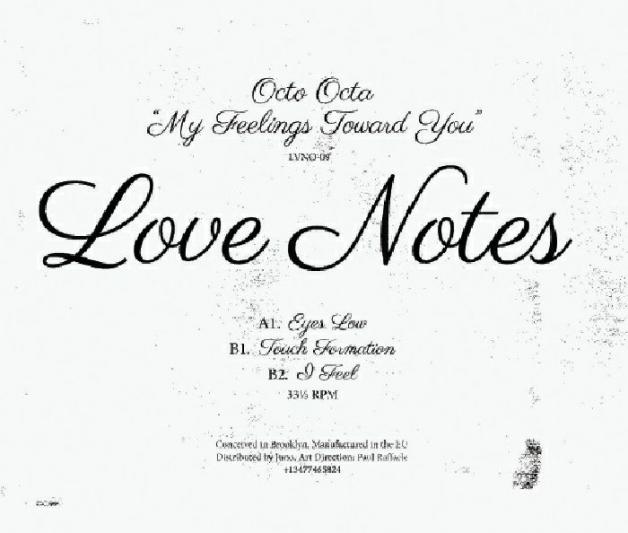 Octo Octa
“My Feelings Toward You”
LVNO-09
Love Notes
A1. Eyes Low
B1. Touch Formation
B2. I Feel
33⅓ RPM
Conceived in Brooklyn, Manufactured in the EU
Distributed by Juno, Art Direction: Paul Raffaele
+13477465824